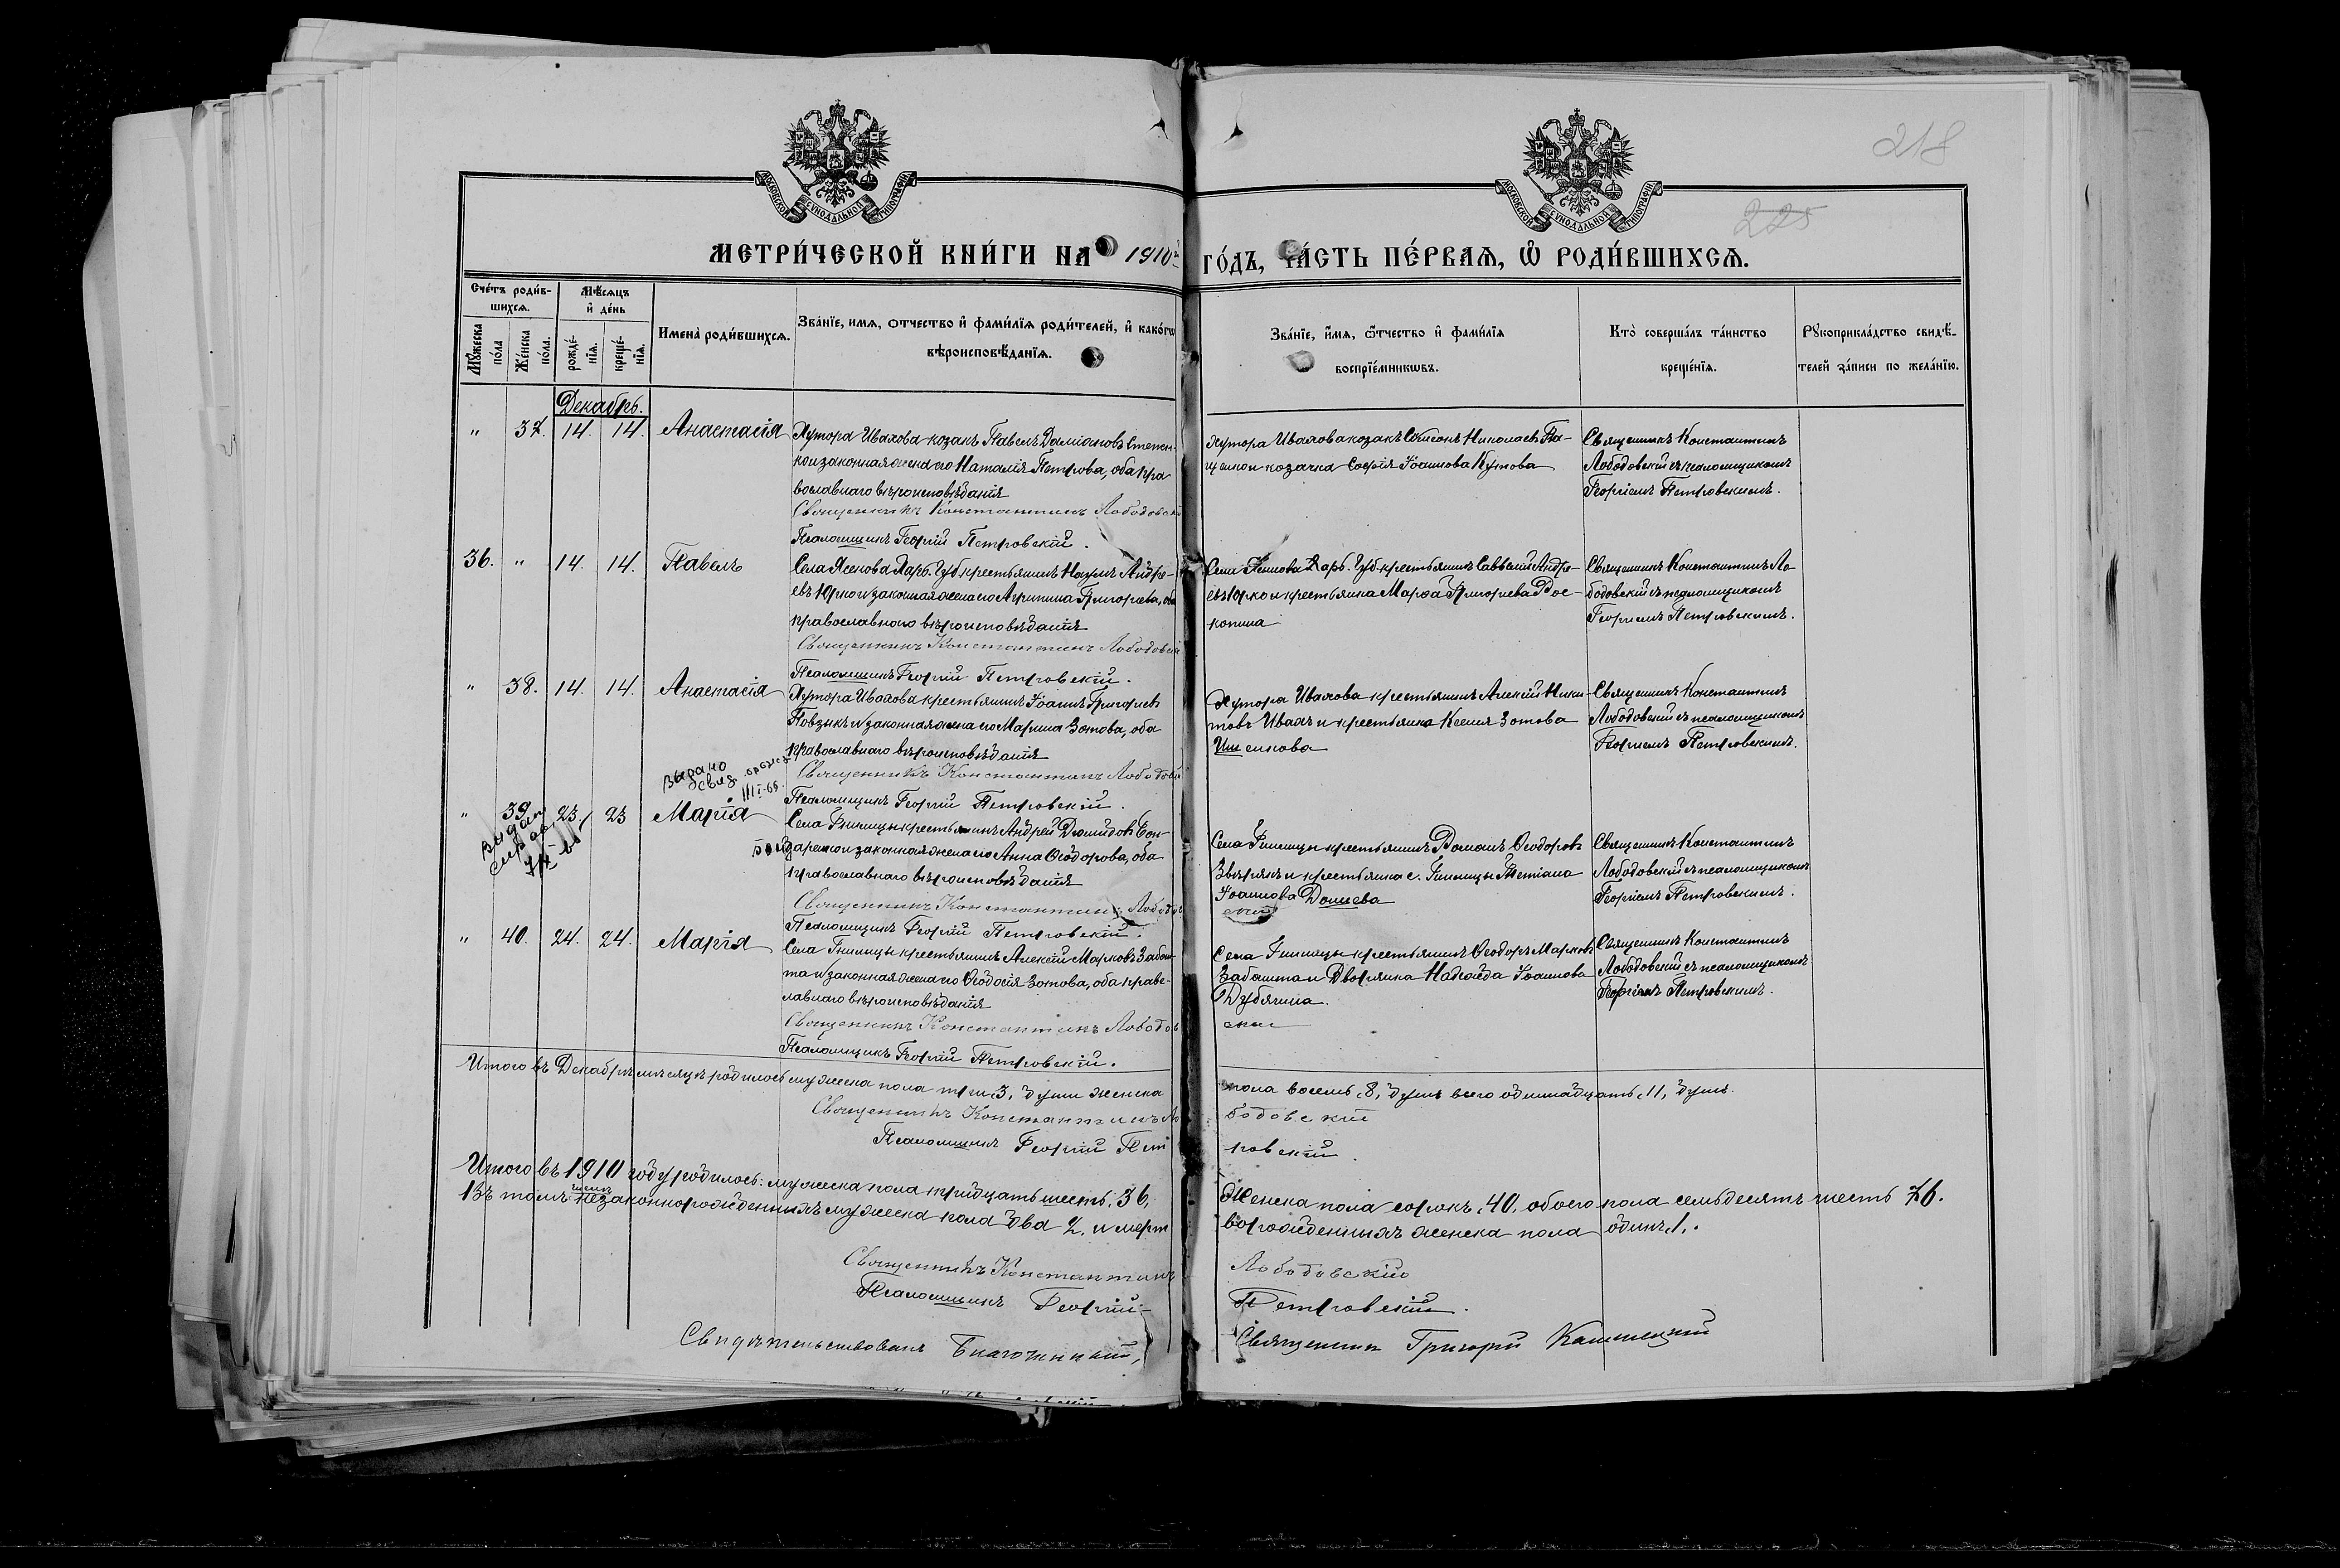 218
225
МЕТРИ́ЧЕСКОЙ КНИ́ГИ НА 1910й ГО́ДЪ, ЧА́СТЬ ПЕ́РВАѦ, Ѡ҆ РОДИ́ВШИХСѦ.
МОСКОВСКОЙ СѴНОДАЛЬНОЙ ТИПОГРАФІИ
МОСКОВСКОЙ СѴНОДАЛЬНОЙ ТИПОГРАФІИ
Сче́тъ роди́в-
шихсѧ.
Мꙋ́жеска по́ла
Же́нска по́ла.
Мѣ́сѧцъ
и҆ де́нь
рожде́-нїѧ.
креще́-нїѧ.
Имена̀ роди́вшихсѧ.
Зва́нїе, имѧ, отчество и҆ фами́лїѧ роди́телей, и҆ како́гѡ
вѣроисповѣ́данїѧ.
Зва́нїе, и҆́мѧ, ѻ҆́тчество и҆ фами́лїѧ
воспрїе́мникѡвъ.
Кто̀ соверша́лъ та́инство
креще́нїѧ.
Рꙋкоприкла́дство свидѣ́-
телей за́писи по жела́нїю.
Декабрь.
" 37. 14. 14. Анастасія
Хутора Ивахова козакъ Павелъ Даміановъ Степен-
ко и законная жена его Наталія Петрова, оба пра
вославнаго вѣроисповѣданія
Священникъ Константинъ Лободовскій
Псаломщикъ Георгій Петровскій.
Хутора Ивахова козакъ Симеонъ Николаевъ Па-
щенко и козачка Софія Іоаннова Кутова
Священникъ Константинъ
Лободовскій съ псаломщикомъ
Георгіемъ Петровскимъ.
36. " 14. 14. Павелъ
Села Ясенова Харь. Губ крестьянинъ Наумъ Андре-
евъ Юрко и законная жена его Агрипина Григорьева, оба
православнаго вѣроисповѣданія
Священникъ Константинъ Лободовскій
Псаломщикъ Георгій Петровскій.
Села Ясенова Харь. Губ крестьянинъ Савватій Андре-
евъ Юрко и крестьянка Марѳа Григорьева Рос-
копина
Священникъ Константинъ Ло
бодовскій съ псаломщикомъ
Георгіемъ Петровскимъ.
" 38. 14. 14. Анастасія
Хутора Ивахова крестьянинъ Іоаннъ Григорьевъ
Повзыкъ и законная жена его Марина Зотова, оба
православнаго вѣроисповѣданія
Священникъ Константинъ Лободовскій
Псаломщикъ Георгій Петровскій.
Хутора Ивахова крестьянинъ Алексій Ники-
товъ Ивахъ и крестьянка Ксенія Зотова
Ищенкова
Священникъ Константинъ
Лободовскій съ псаломщикомъ
Георгіемъ Петровскимъ.
" 39 23. 23 Марія
Выдано
свид.
Села Гнилицы крестьянинъ Андрей Діомидовъ Бон-
даренко и законная жена его Анна Ѳеодорова, оба
православнаго вѣроисповѣданія
Священникъ Константинъ Лободов
Псаломщикъ Георгій Петровскій.
Села Гнилицы крестьянинъ Романъ Ѳеодоровъ
Звѣрякъ и крестьянка с. Гнилицы Тетіана
Іоаннова Домнева
скій
Священникъ Константинъ
Лободовскій съ псаломщикомъ
Георгіемъ Петровскимъ.
" 40. 24. 24. Марія
Села Гнилицы крестьянинъ Алексій Марковъ Забаш-
та и законная жена его Ѳеодосія Зотова, оба право-
славнаго вѣроисповѣданія
Священникъ Константинъ Лободов
Псаломщикъ Георгій Петровскій.
Села Гнилицы крестьянинъ Ѳеодоръ Марковъ
Забашта и Дворянка Надежда Іоаннова
Дубягина.
скій
Священникъ Константинъ
Лободовскій съ псаломщикомъ
Георгіемъ Петровскимъ.
Итого въ Декабрѣ мѣсяцѣ родилось мужеска пола три, 3, души женска пола восемь, 8, душъ всего одиннадцать, 11, душъ.
Священникъ Константинъ Лободовскій
Псаломщикъ Георгій Петровскій.
Итого въ 1910 году родилось: мужеска пола тридцать шесть, 36, Женска пола сорокъ, 40, обоего пола семьдесятъ шесть 76.
Въ томъ числѣ незаконнорожденныхъ мужеска пола два 2, и мертворожденныхъ женска пола одинъ, 1,.
Священникъ Константинъ Лободовскій
Псаломщикъ Георгій Петровскій.
Свидѣтельствовалъ Благочинный, Священникъ Григорій